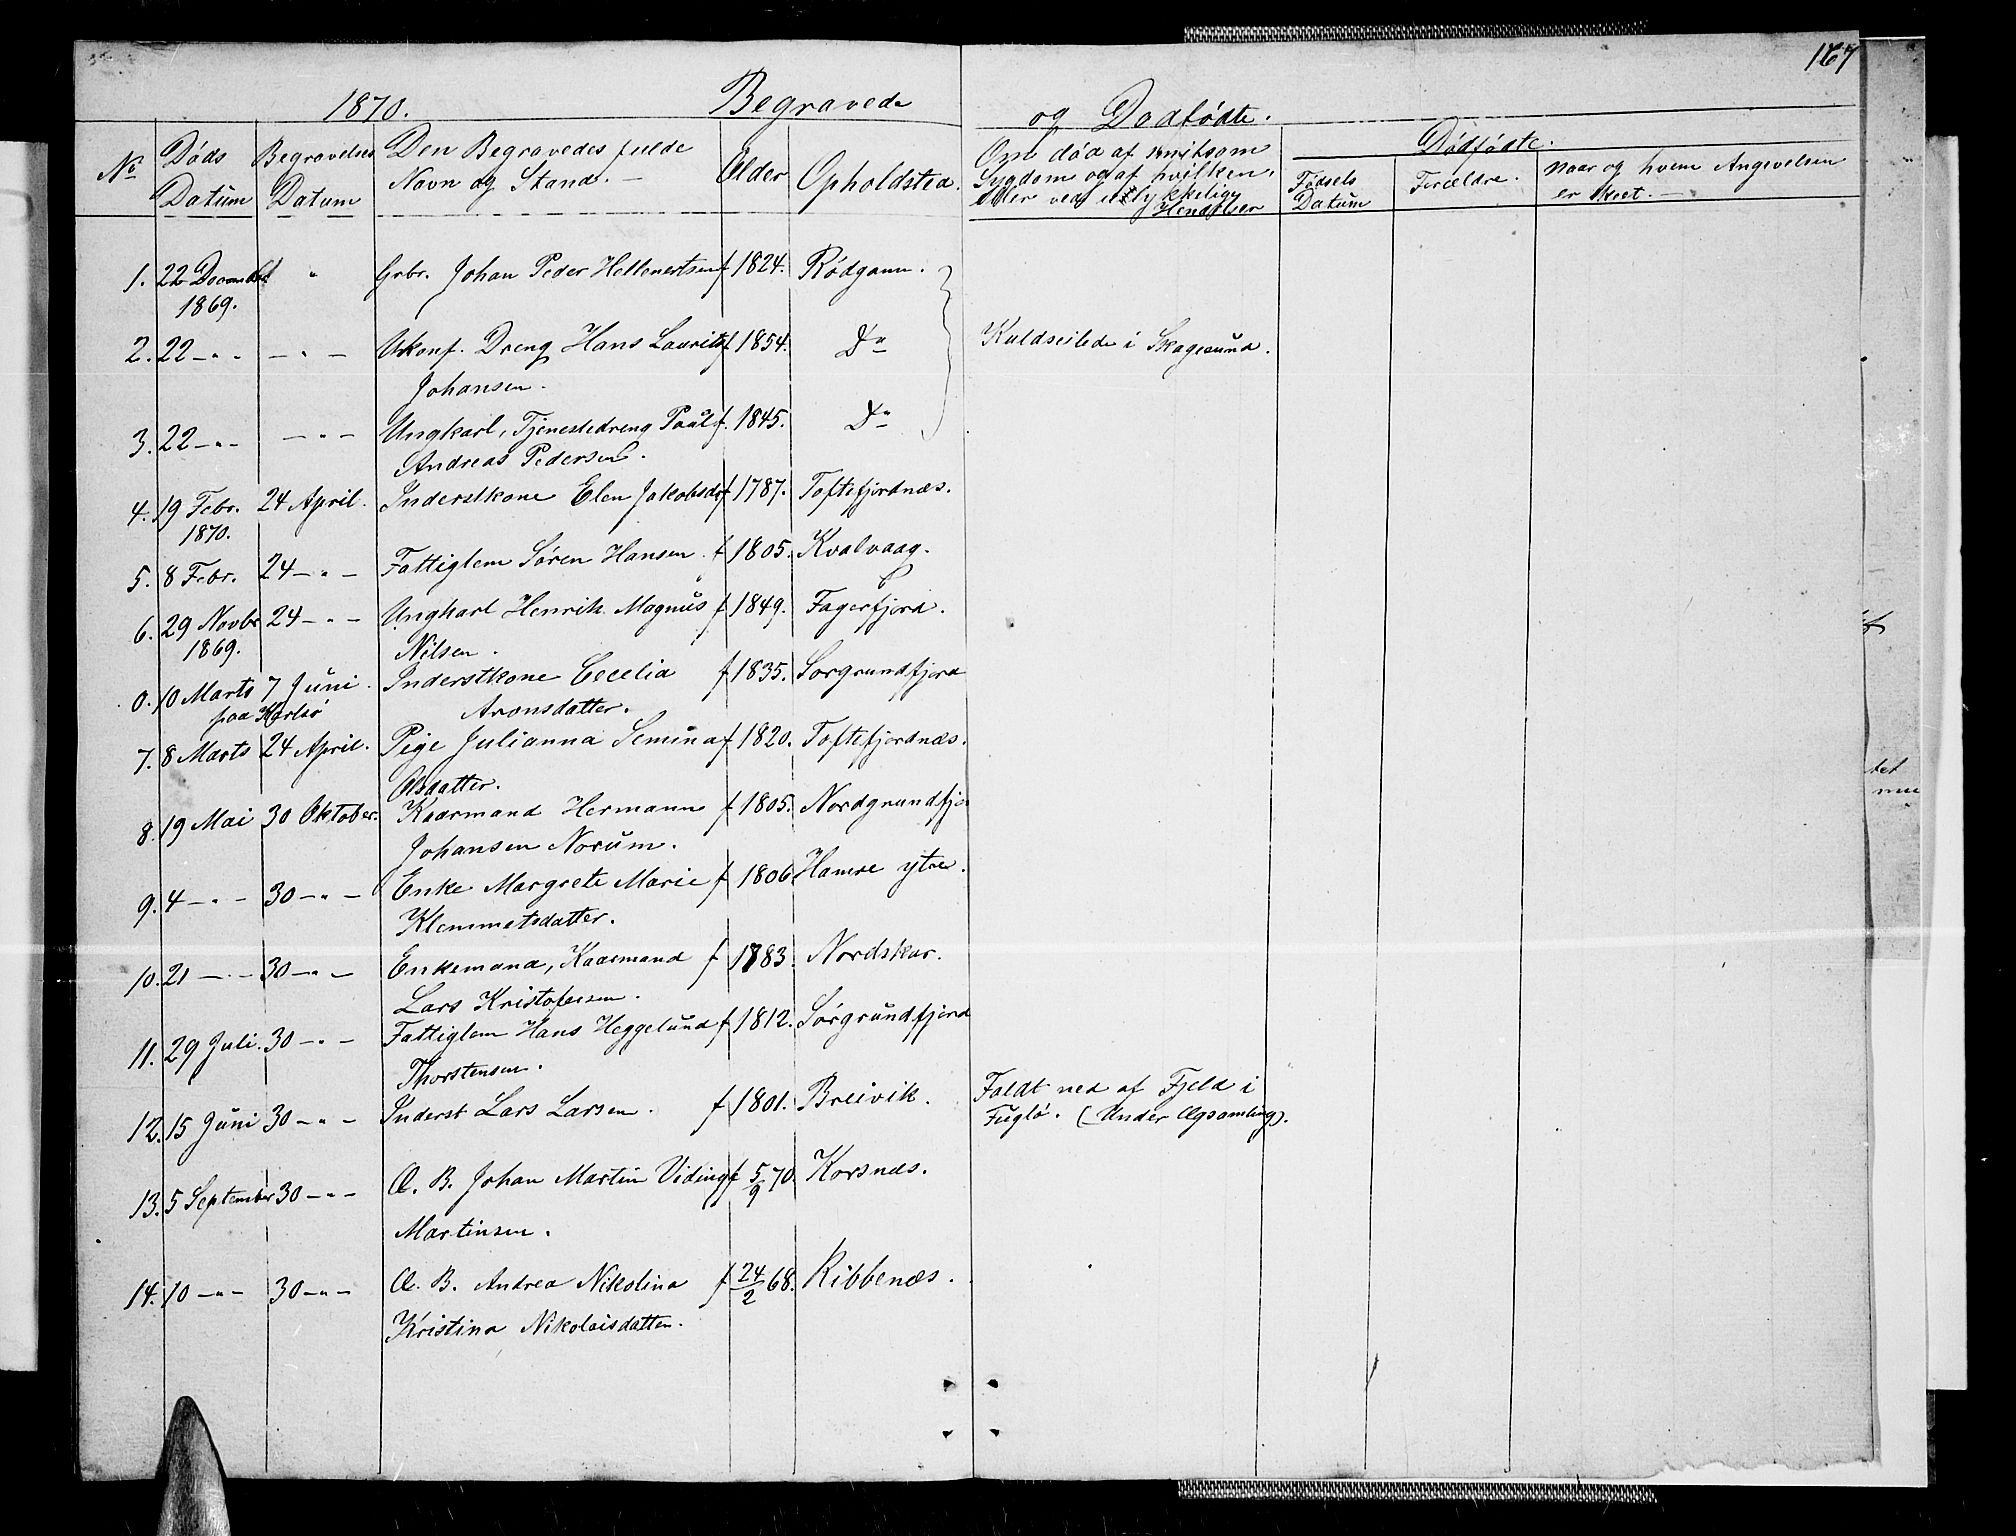 167
1870. Begravede og Dødfødte.
No Døds Datum Begravelses Datum Den Begravedes fulde Navn og Stand. Alder Opholdsted. Om død af smitsom Sygdom og af hvilken, eller ved ulykkelige Hendelser Dødfødte. Fødsels Datum Forældre. Naar og hvem Angivelsen er skeet.
1. 22 December " Grbr. Johan Peder Hellenertsen f 1824. Rødgam.
1869.
2. 22 - " - - " - Ukonf. Dreng Hans Laurits f 1854. Do Kuldseilede i Skagesund.
Johansen.
3. 22 - " - - " - Ungkarl, Tjenestedreng Paul f. 1845. Do
Andreas Pedersen.
4. 19 Febr. 24 April. Inderstkone Elen Jakobsdr f 1787. Toftefjordnæs.
1870.
5. 8 Febr. 24 - " - Fattiglem Søren Hansen. f 1805. Kvalvaag.
6. 29 Novbr 24 - " - Ungkarl Henrik Magnus f 1849. Fagerfjord.
1869. Nilsen.
0. 10 Marts 7 Juni. Inderstkone Cecelia f 1835. Sørgrundfjord
paa Karlsø Aronsdatter.
7. 8 Marts 24 April. Pige Julianna Semina f 1820. Toftefjordnæs.
Olsdatter.
8. 19 Mai 30 Oktober. Kaarmand Hermann f 1805. Nordgrundfjo
Johansen Norum.
9. 4 - " - 30 - " - Enke Margrete Marie f 1806. Hamre ytre.
Klemmetsdatter.
10. 21 - " - 30 - " - Enkemand, Kaarmand f 1783. Nordskar.
Lars Kristofersen.
11. 29 Juli. 30 - " - Fattiglem Hans Heggelund f 1812. Sørgrundfjord
Thorstensen.
12. 15 Juni 30 - " - Inderst Lars Larsen. f 1801. Breivik. Faldt ned af Fjeld i
Fuglø. (Under Ægsamling).
13. 5 September 30 - " - Æ. B. Johan Martin Viding f 5/9 70. Korsnæs.
Martinsen.
14. 10 - " - 30 - " - Æ. B. Andrea Nikolina f 24/2 68. Ribbenæs.
Kristina Nikolaisdatter.